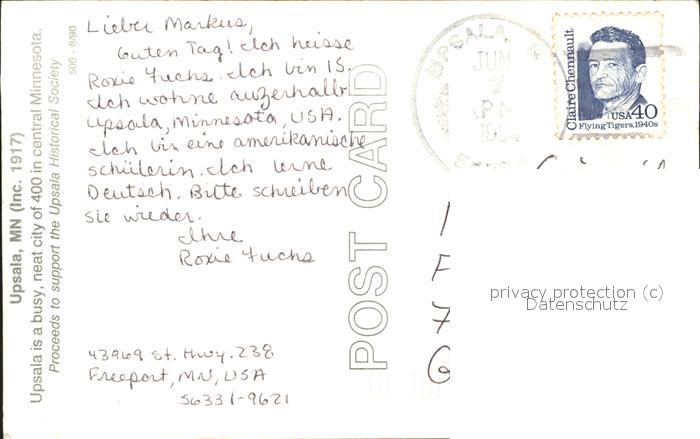 Lieber Markus,
Guten Tag! Ich heisse
Roxie Fuchs. Ich bin 15.
Ich wohne auzerhalb
Upsala, Minnesota, USA.
Ich bin eine amerikanische
schülerin. Ich lerne
Deutsch. Bitte schreiben
sie wieder.
Ihre
Roxie Fuchs
43969 St. Hwy. 238
Freeport, MN, USA
56331-9621
Upsala, MN (Inc. 1917)
Upsala is a busy, neat city of 400 in central Minnesota.
Proceeds to support the Upsala Historical Society
500 - 8/90
POST CARD
UPSALA, M
JUN
7
PM
Claire Chennault
USA 40
Flying Tigers, 1940s
privacy protection (c)
Datenschutz